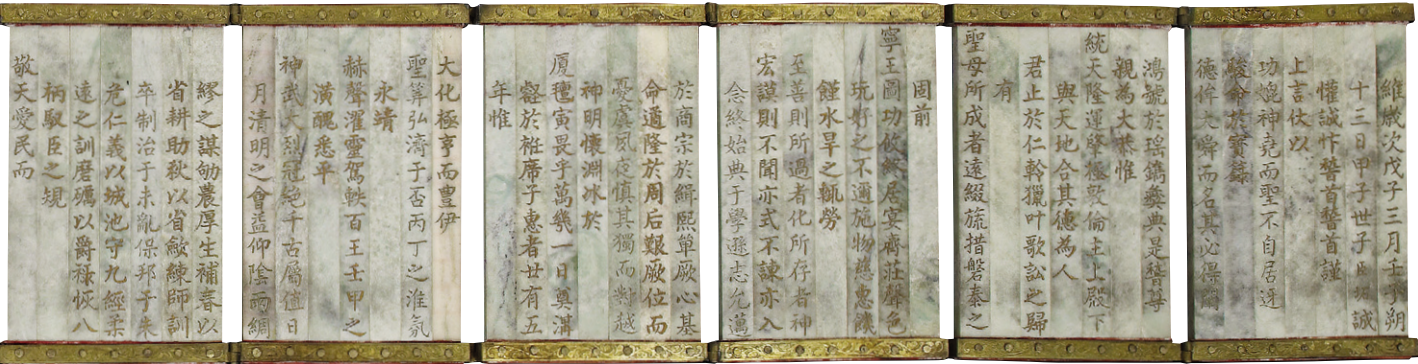 維歲次戊子三月壬子朔
十三日甲子世子臣誠
懽誠忭稽首稽首謹
上言伏以
功媲神堯而聖不自居迓
駿命於寶籙
德侔舜而名其必得
鴻號於瑤鐫彝典是稽尊
親為大恭惟
統天隆運肇極敦倫主上殿下
與天地合其德為人
君止於仁獵叶歌訟之歸
有
聖母所成者遠綴旒措磐泰之
固前
寧王圖功攸終居宴齊莊聲色
玩好之不邇施物慈惠
饉水旰之軫勞
至善則所過者化所存者神
宏謨則不聞亦式不諫亦入
念終始典于學遜志允邁
於商宗於緝熙單厥心基
命遹隆於周后艱厥位而
憂虞夙夜慎其獨而對越
神明懷淵冰於
廈氊寅畏乎萬幾一日奠溝
壑於袵席子惠者卅有五
年惟
大化極亨而豊伊
聖筭弘濟于否丙丁之淮氛
永靖
赫聲濯靈駕軼百王壬甲之
潢醜悉平
神武大烈冠絶千古屬值日
月清明之會益仰陰雨綢
繆之謀劬農厚生補春以
省耕助秋以省斂練師訓
卒制治于未亂保邦于未
危仁義以城池守九經柔
遠之訓磨礪以爵祿恢八
柄馭臣之規
敬天愛民而